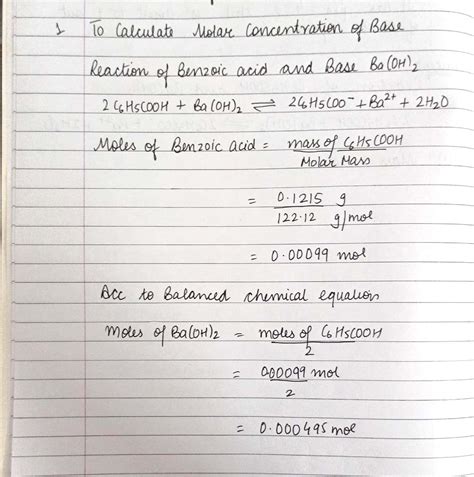 1 To Calculate Molar Concentration of Base
Reaction of Benzoic acid and Base Ba(OH)2
2 C6H5COOH + Ba(OH)2 ⇌ 2C6H5COO⁻ + Ba²⁺ + 2H2O
Moles of Benzoic acid = mass of C6H5COOH
Molar Mass
= 0.1215 g
122.12 g/mol
= 0.00099 mol
Acc to Balanced chemical equation
Moles of Ba(OH)2 = moles of C6H5COOH
2
= 0.00099 mol
2
= 0.000495 mol